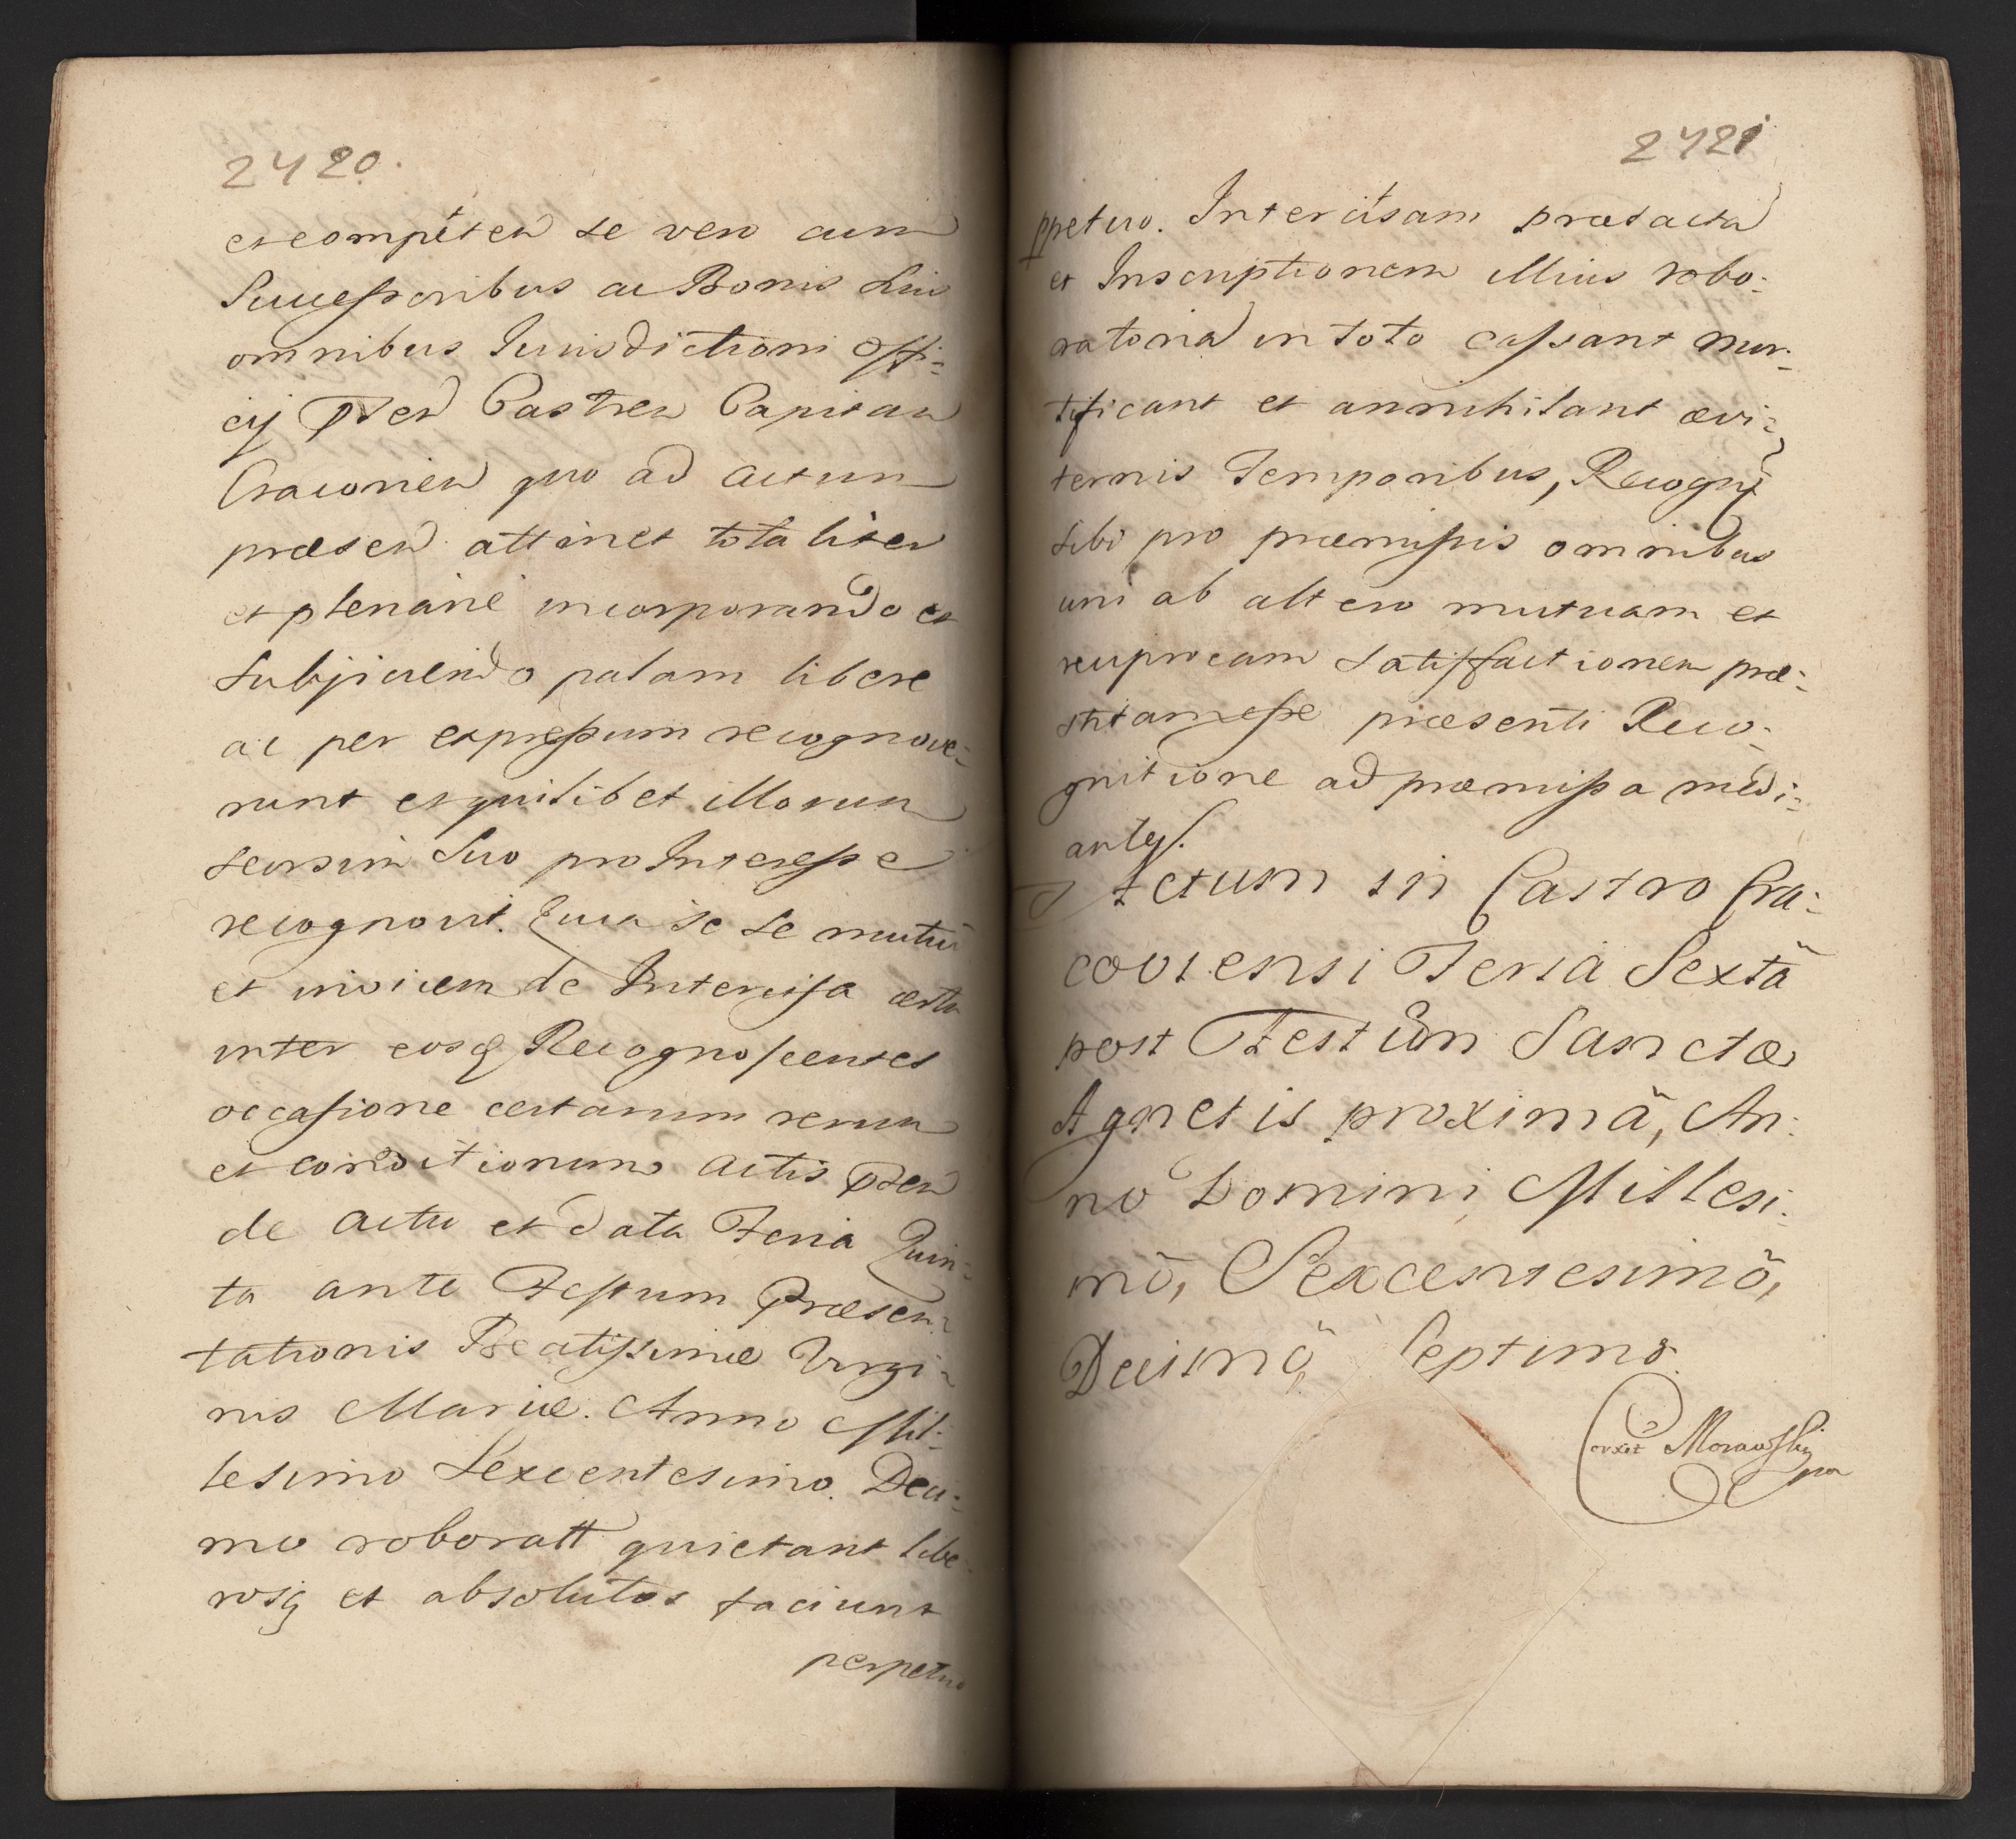 2420.
et competen se vero cum
Successoribus ac Bonis suis
omnibus Jurisdictioni offi-
cij pṡen Castren Capitan
Cracovien quo ad actum
præsen attinet totaliter
et plenarie incorporando et
subijciendo palam libere
ac per expressum recognove-
runt et quilibet illorum
seorsim suo pro Interesse
recognovit. Quia se se mutuo
et invicem de Intercisa certa
inter eosq Recognoscentes
occasione certarum rerum
et conditionum actis pṡen
de actu et data Feria Quin-
ta ante Festum Præsen-
tationis Beatissimæ Virgi-
nis Mariæ. Anno Mil-
lesimo Sexcentesimo. Deci-
mo roboratt quietant libe-
rosq et absolutos faciunt
perpetuo
2421
ppetuo. Intercisam prætacta
et Inscriptionem illius robo-
ratoria in toto cassant mor-
tificant et annihilant ævi-
ternis Temporibus, Recogn
sibi pro præmissis omnibus
uni ab altero mutuam et
reciprocam satisfactionem præ-
stitam esse præsenti Reco-
gnitione ad præmissa medi-
ante.
Actum in Castro Cra-
coviensi Feriâ Sextâ
post Festum Sanctæ
Agnetis proximâ, An-
no Domini Millesi-
mô, Sexcentesimô,
Decimô, Septimo.
Corxet Morawsky